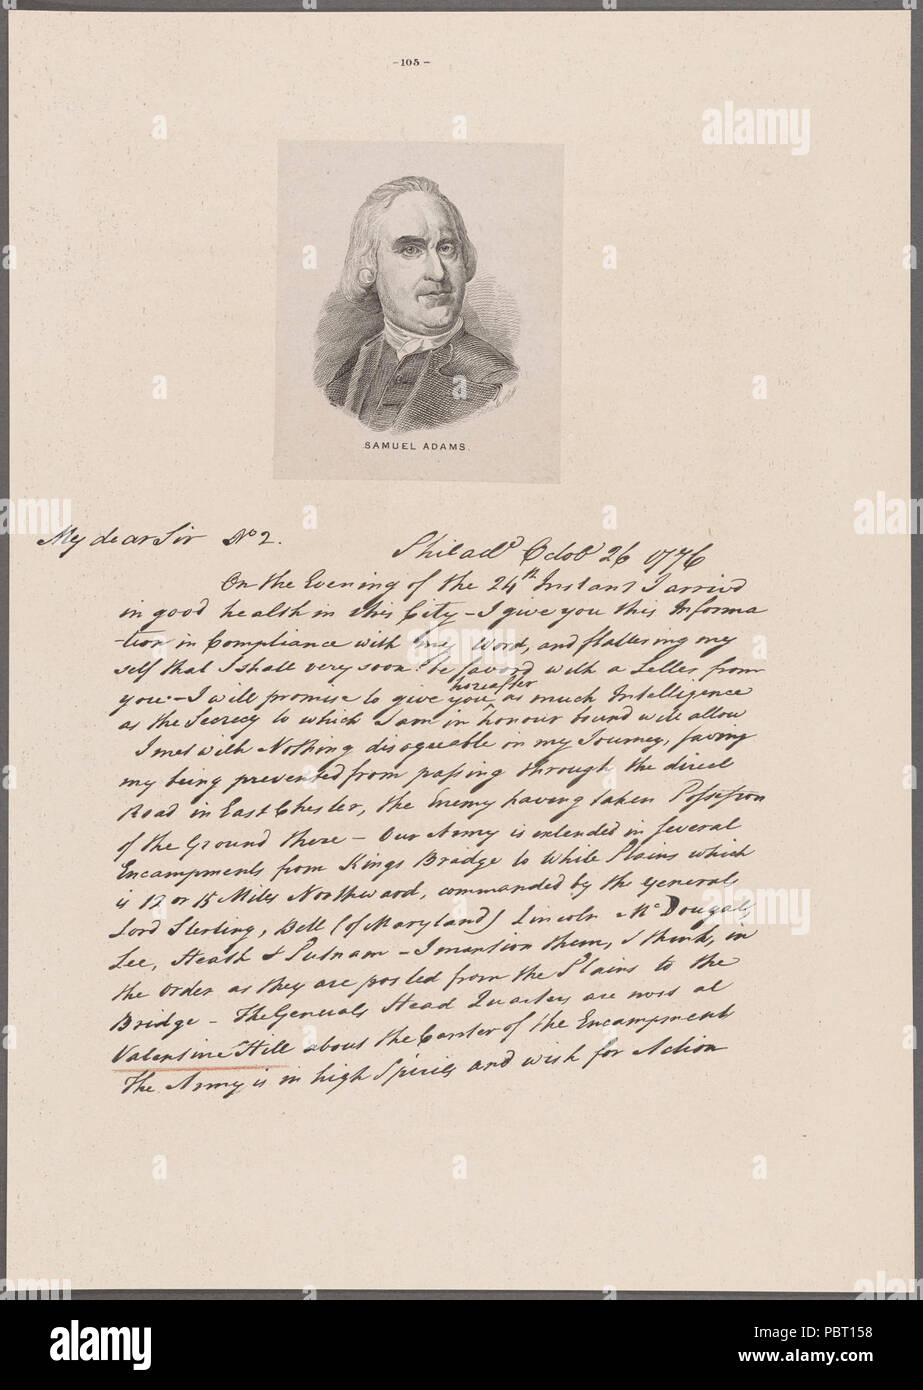 -105-
alamy
SAMUEL ADAMS.
My dear Sir No 2.
Philad^a Octob^r 26 1776
On the Evening of the 24th Instant I arrivd
in good health in this City - I give you this Informa
-tion in Compliance with my Word, and flattering my
self that I shall very soon be favord with a Letter from
you - I will promise to give you hereafter as much Intelligence
as the Secrecy to which I am in honour bound will allow
I met with Nothing disagreable in my Journey, saving
my being prevented from passing through the direct
Road in East Chester, the Enemy having taken Possession
of the Ground there - Our Army is extended in several
Encampments from Kings Bridge to White Plains which
is 12 or 15 Miles Northward, commanded by the generals
Lord Sterling, Bell (of Maryland) Lincoln McDougall,
Lee, Heath & Putnam - I mention them, I think, in
the order as they are posted from the Plains to the
Bridge - The Generals Head Quarters are now at
Valentine Hill about the Center of the Encampment
The Army is in high Spirits and wish for Action
alamy
Image ID: PBT158
www.alamy.com